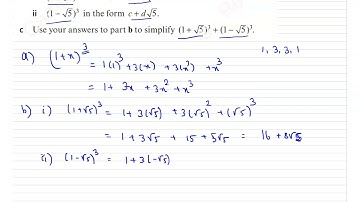 ii (1 − √5)³ in the form c + d√5.
c Use your answers to part b to simplify (1 + √5)³ + (1 − √5)³.
a) (1+x)³ 1, 3, 3, 1
= 1(1)³ + 3(x) + 3(x)² + x³
= 1 + 3x + 3x² + x³
b) i) (1+√5)³ = 1 + 3(√5) + 3(√5)² + (√5)³
= 1 + 3√5 + 15 + 5√5 = 16 + 8√5
ii) (1-√5)³ = 1 + 3(-√5)